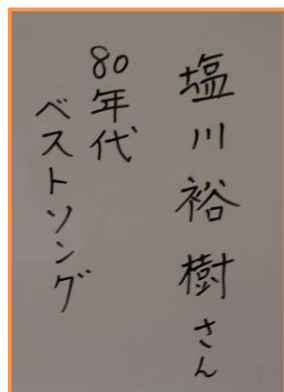 塩川裕樹さん
80年代
ベストソング